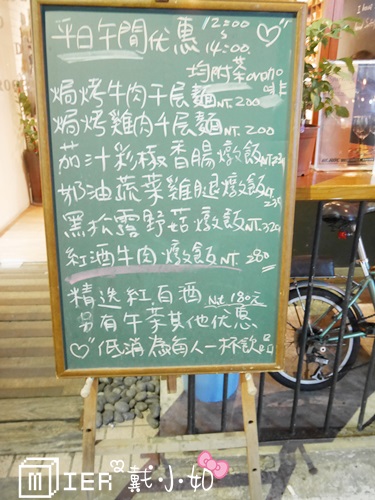 平日午間优惠 12:00
~
14:00
均附茶orono
咖
焗烤牛肉千层麵NT.200
焗烤雞肉千层麵NT.200
茄汁彩椒香腸燉飯NT.
奶油蔬菜雞腿燉飯NT.
黑松露野菇燉飯NT.320
紅酒牛肉燉飯NT 280
精选紅白酒 Nt 180元
另有午茶其他优惠
低消為每人一杯飲品
MIER 戴小如